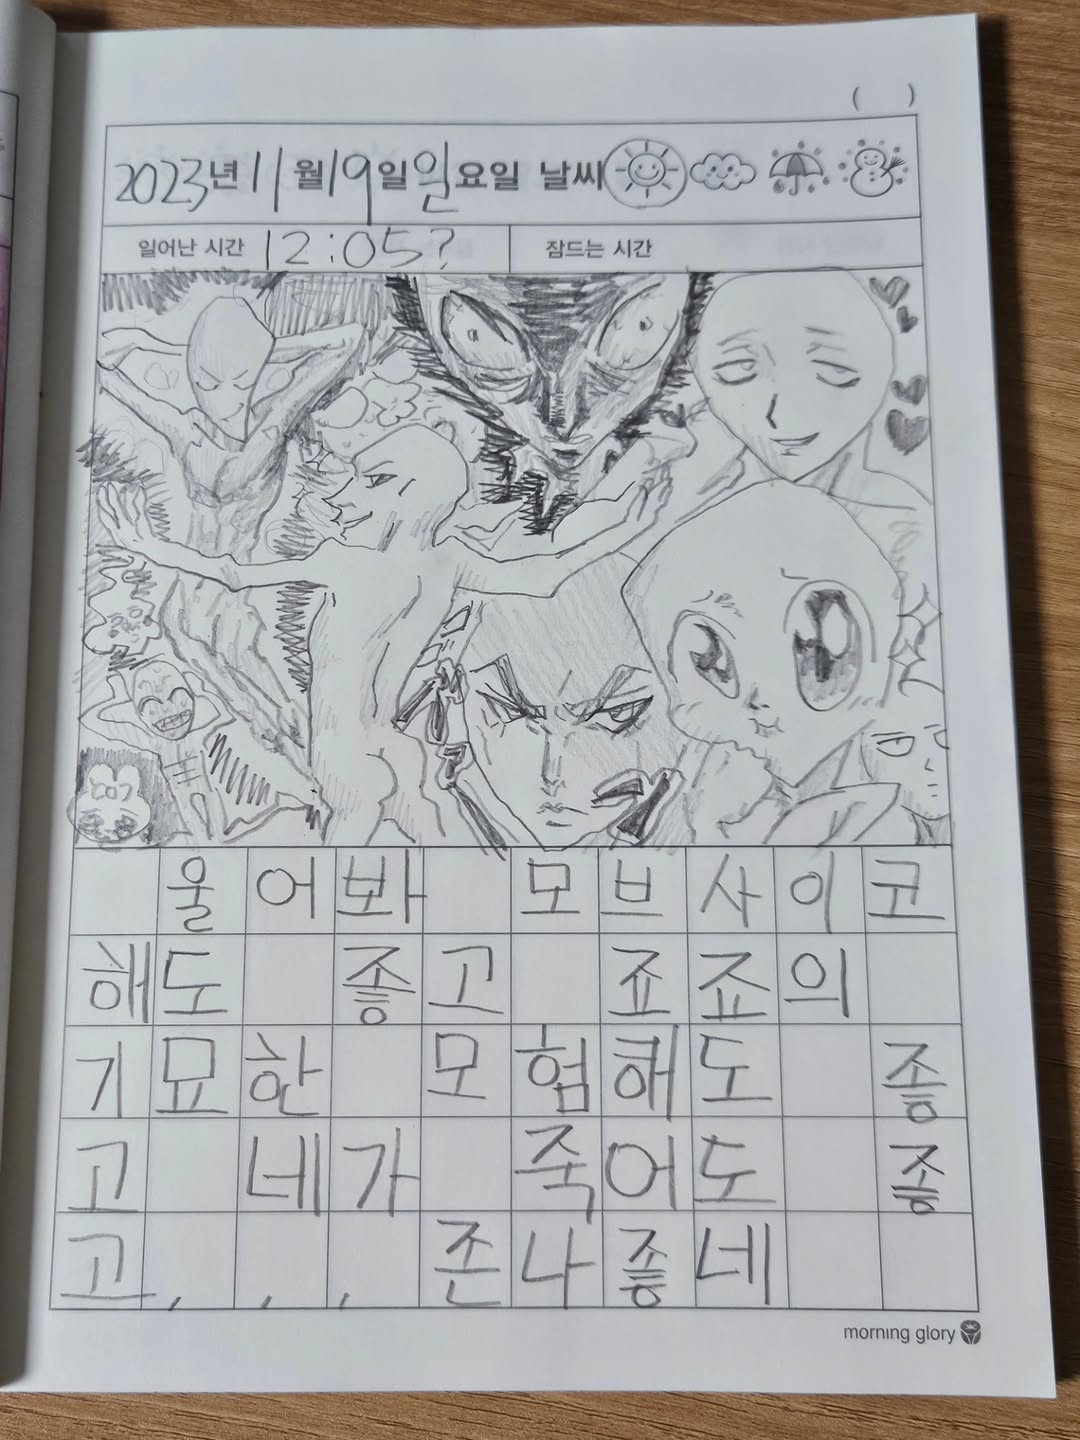 ( )
2023년 11월 19일 일요일 날씨
일어난 시간 12:05? 잠드는 시간
울어봐 모브사이코
해도 좋고 죠죠의
기묘한 모험해도 좋
고 네가 죽어도 좋
고, , , 존나좋네
morning glory